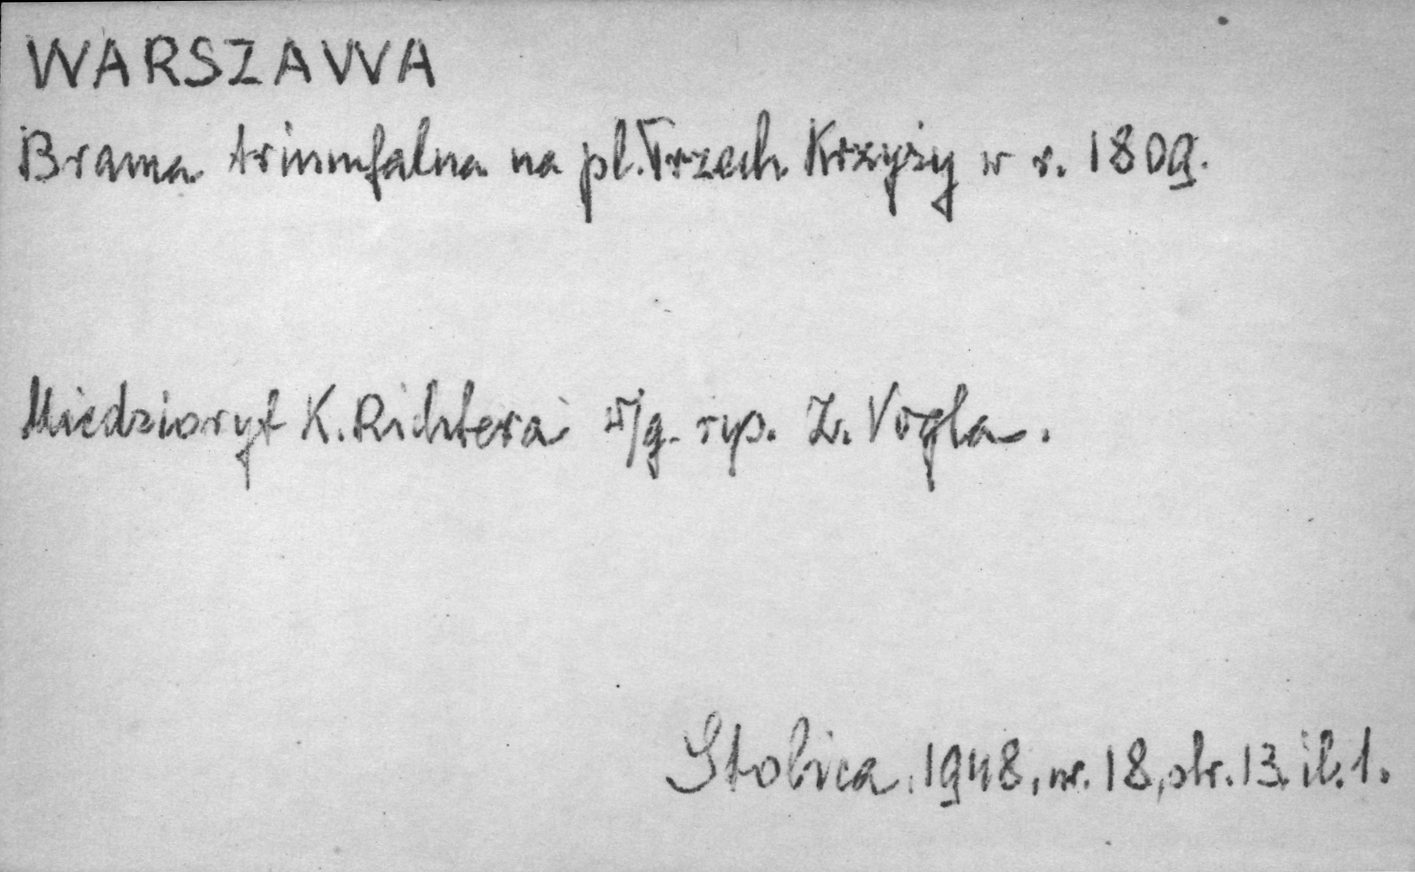 WARSZAWA
Brama triumfalna na pl. Trzech Krzyży w r. 1809.
Miedzioryt K. Richtera w/g. rys. Z. Vogla.
Stolica, 1948, nr. 18, str. 13. il. 1.